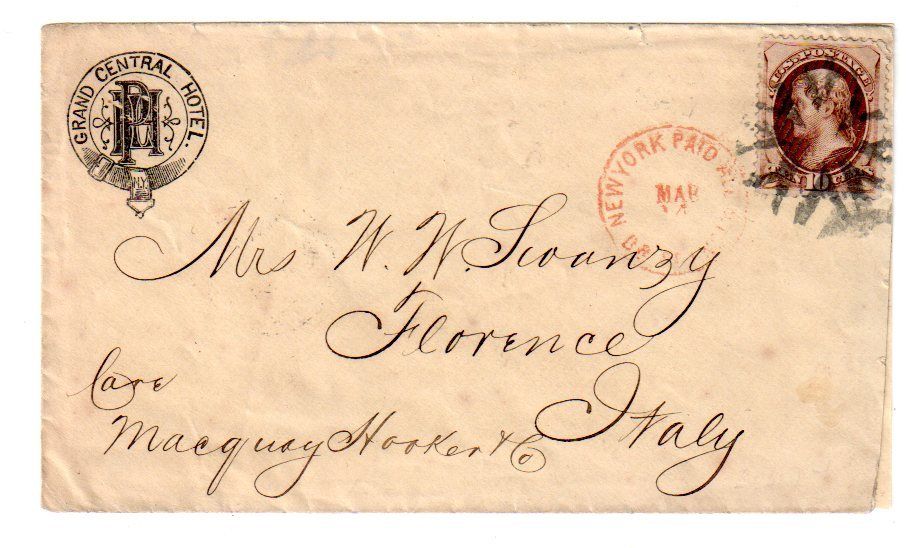 GRAND CENTRAL HOTEL.
N.Y.
U.S. POSTAGE
10
NEW YORK PAID ALL
MAR
Mrs W. W. Swanzy
Florence
Italy
Care
Macquay Hooker & Co